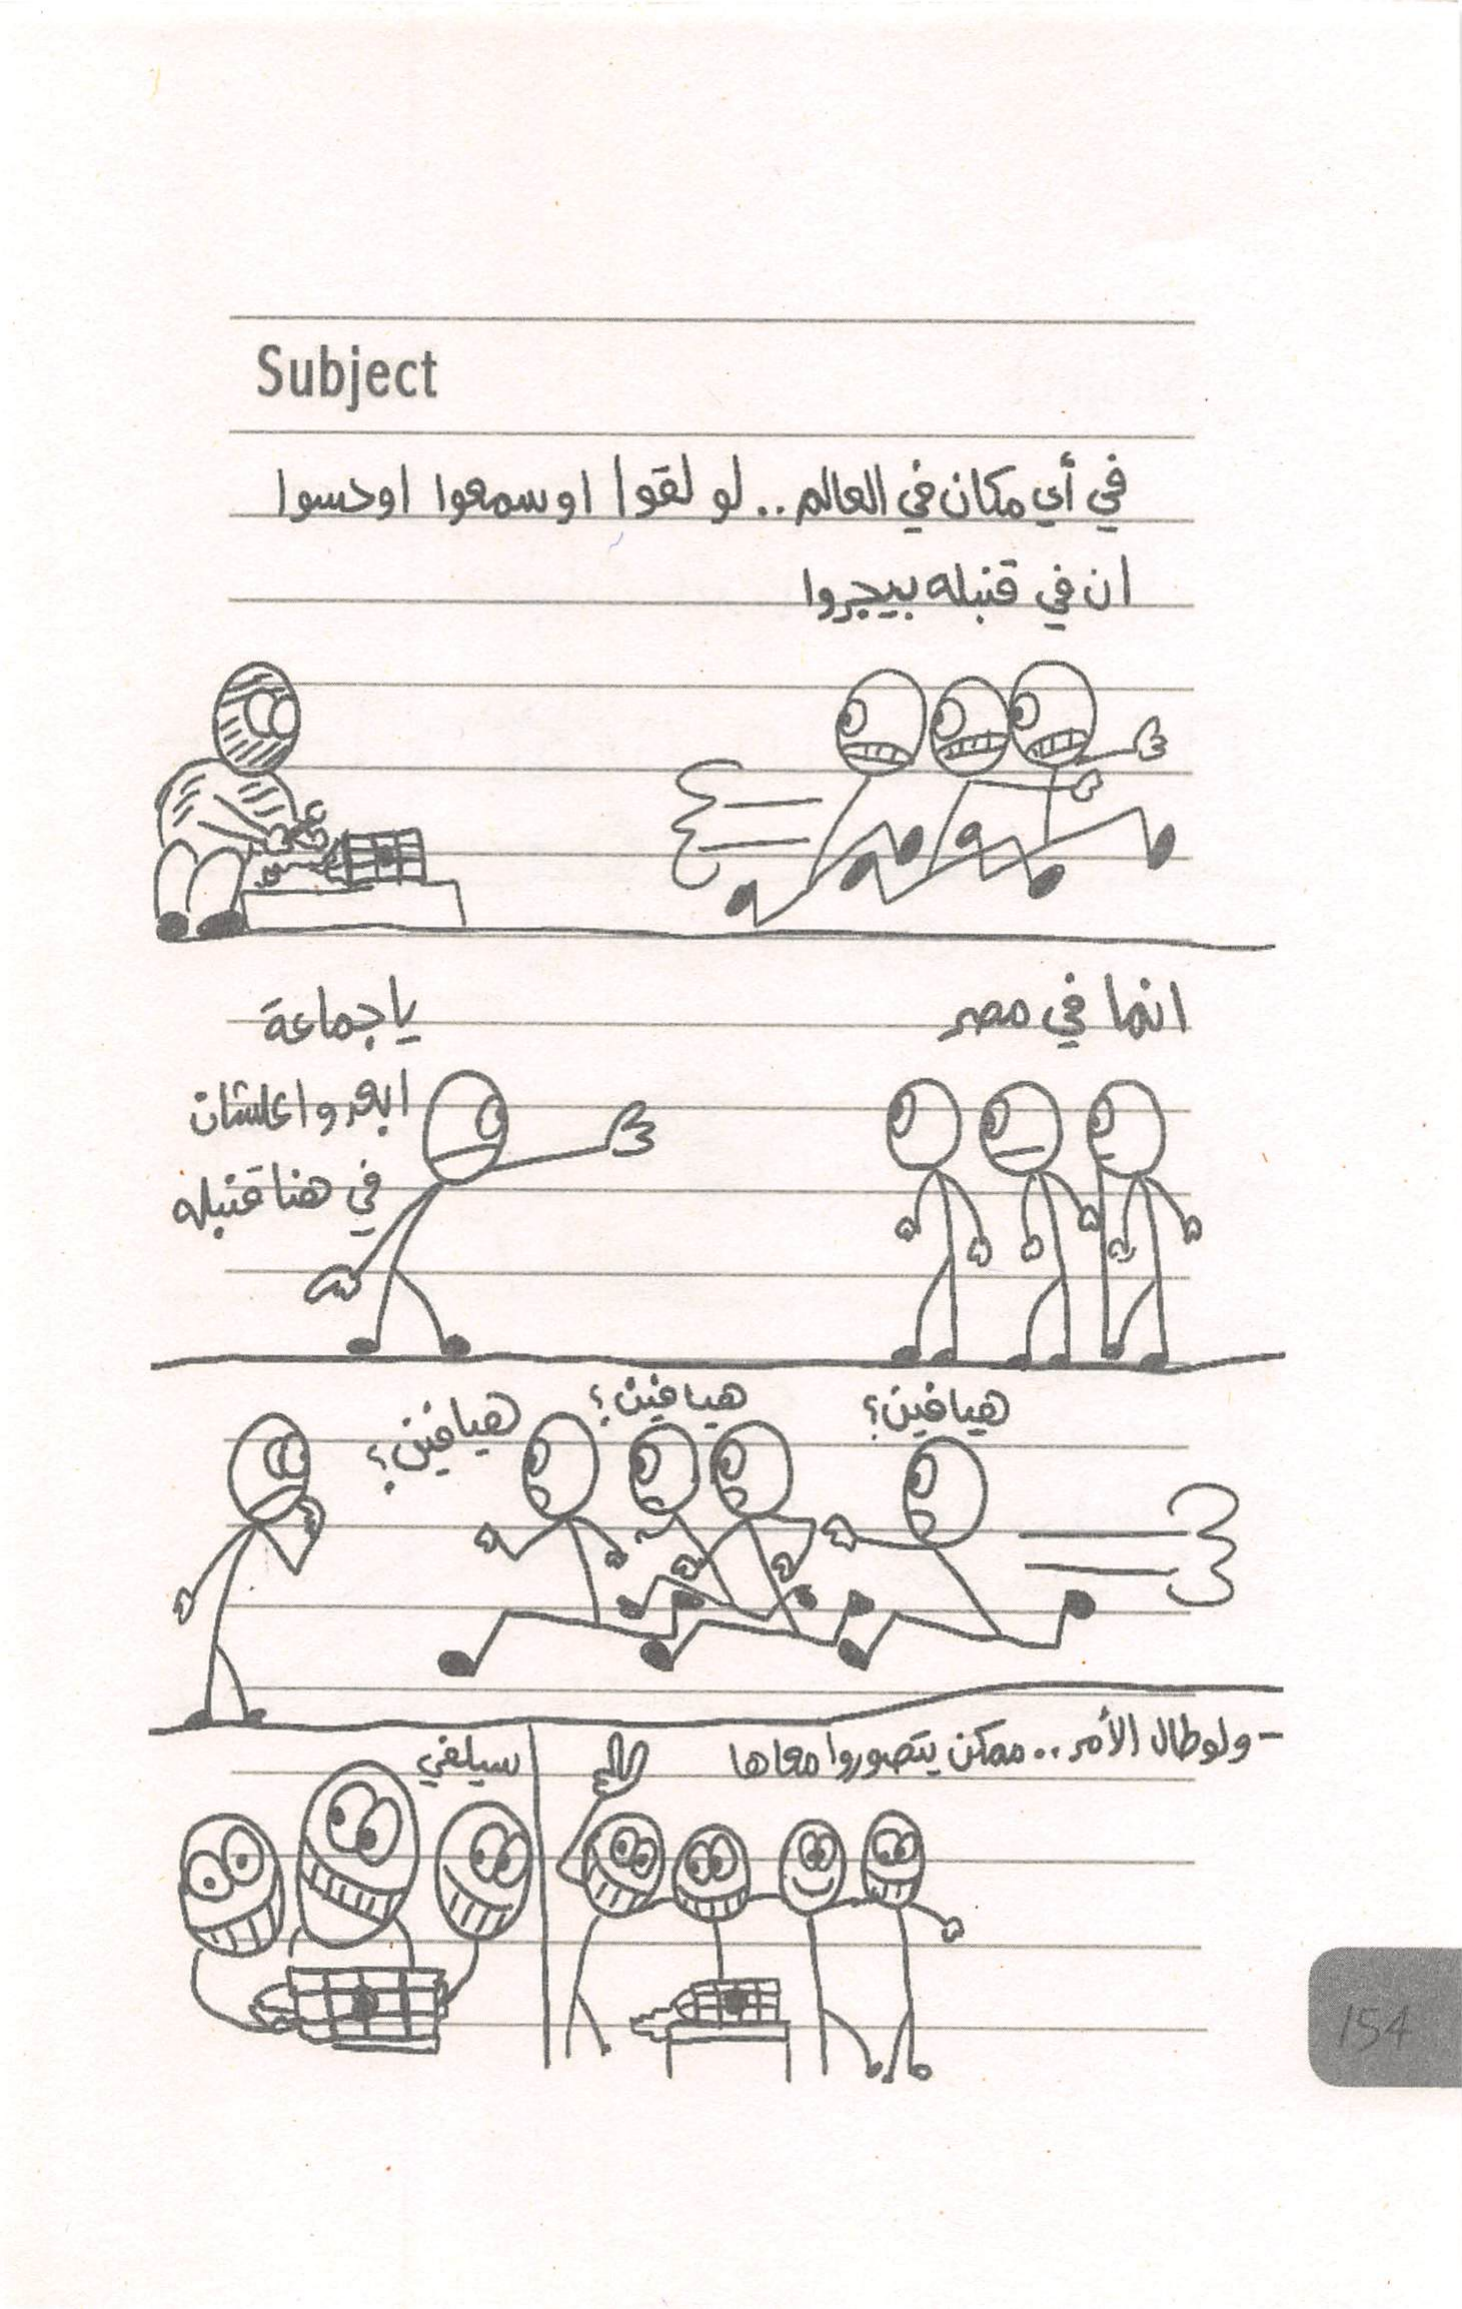 Subject
في أي مكان في العالم .. لو لقوا او سمعوا او حسوا
ان في قنبله بيجروا
انما في مصر
ياجماعة
ابعدوا علشان
في هنا قنبله
هيا فين؟
هيا فين؟
هيا فين؟
- ولو طال الأمر .. ممكن يتصوروا معاها
سيلفي
154